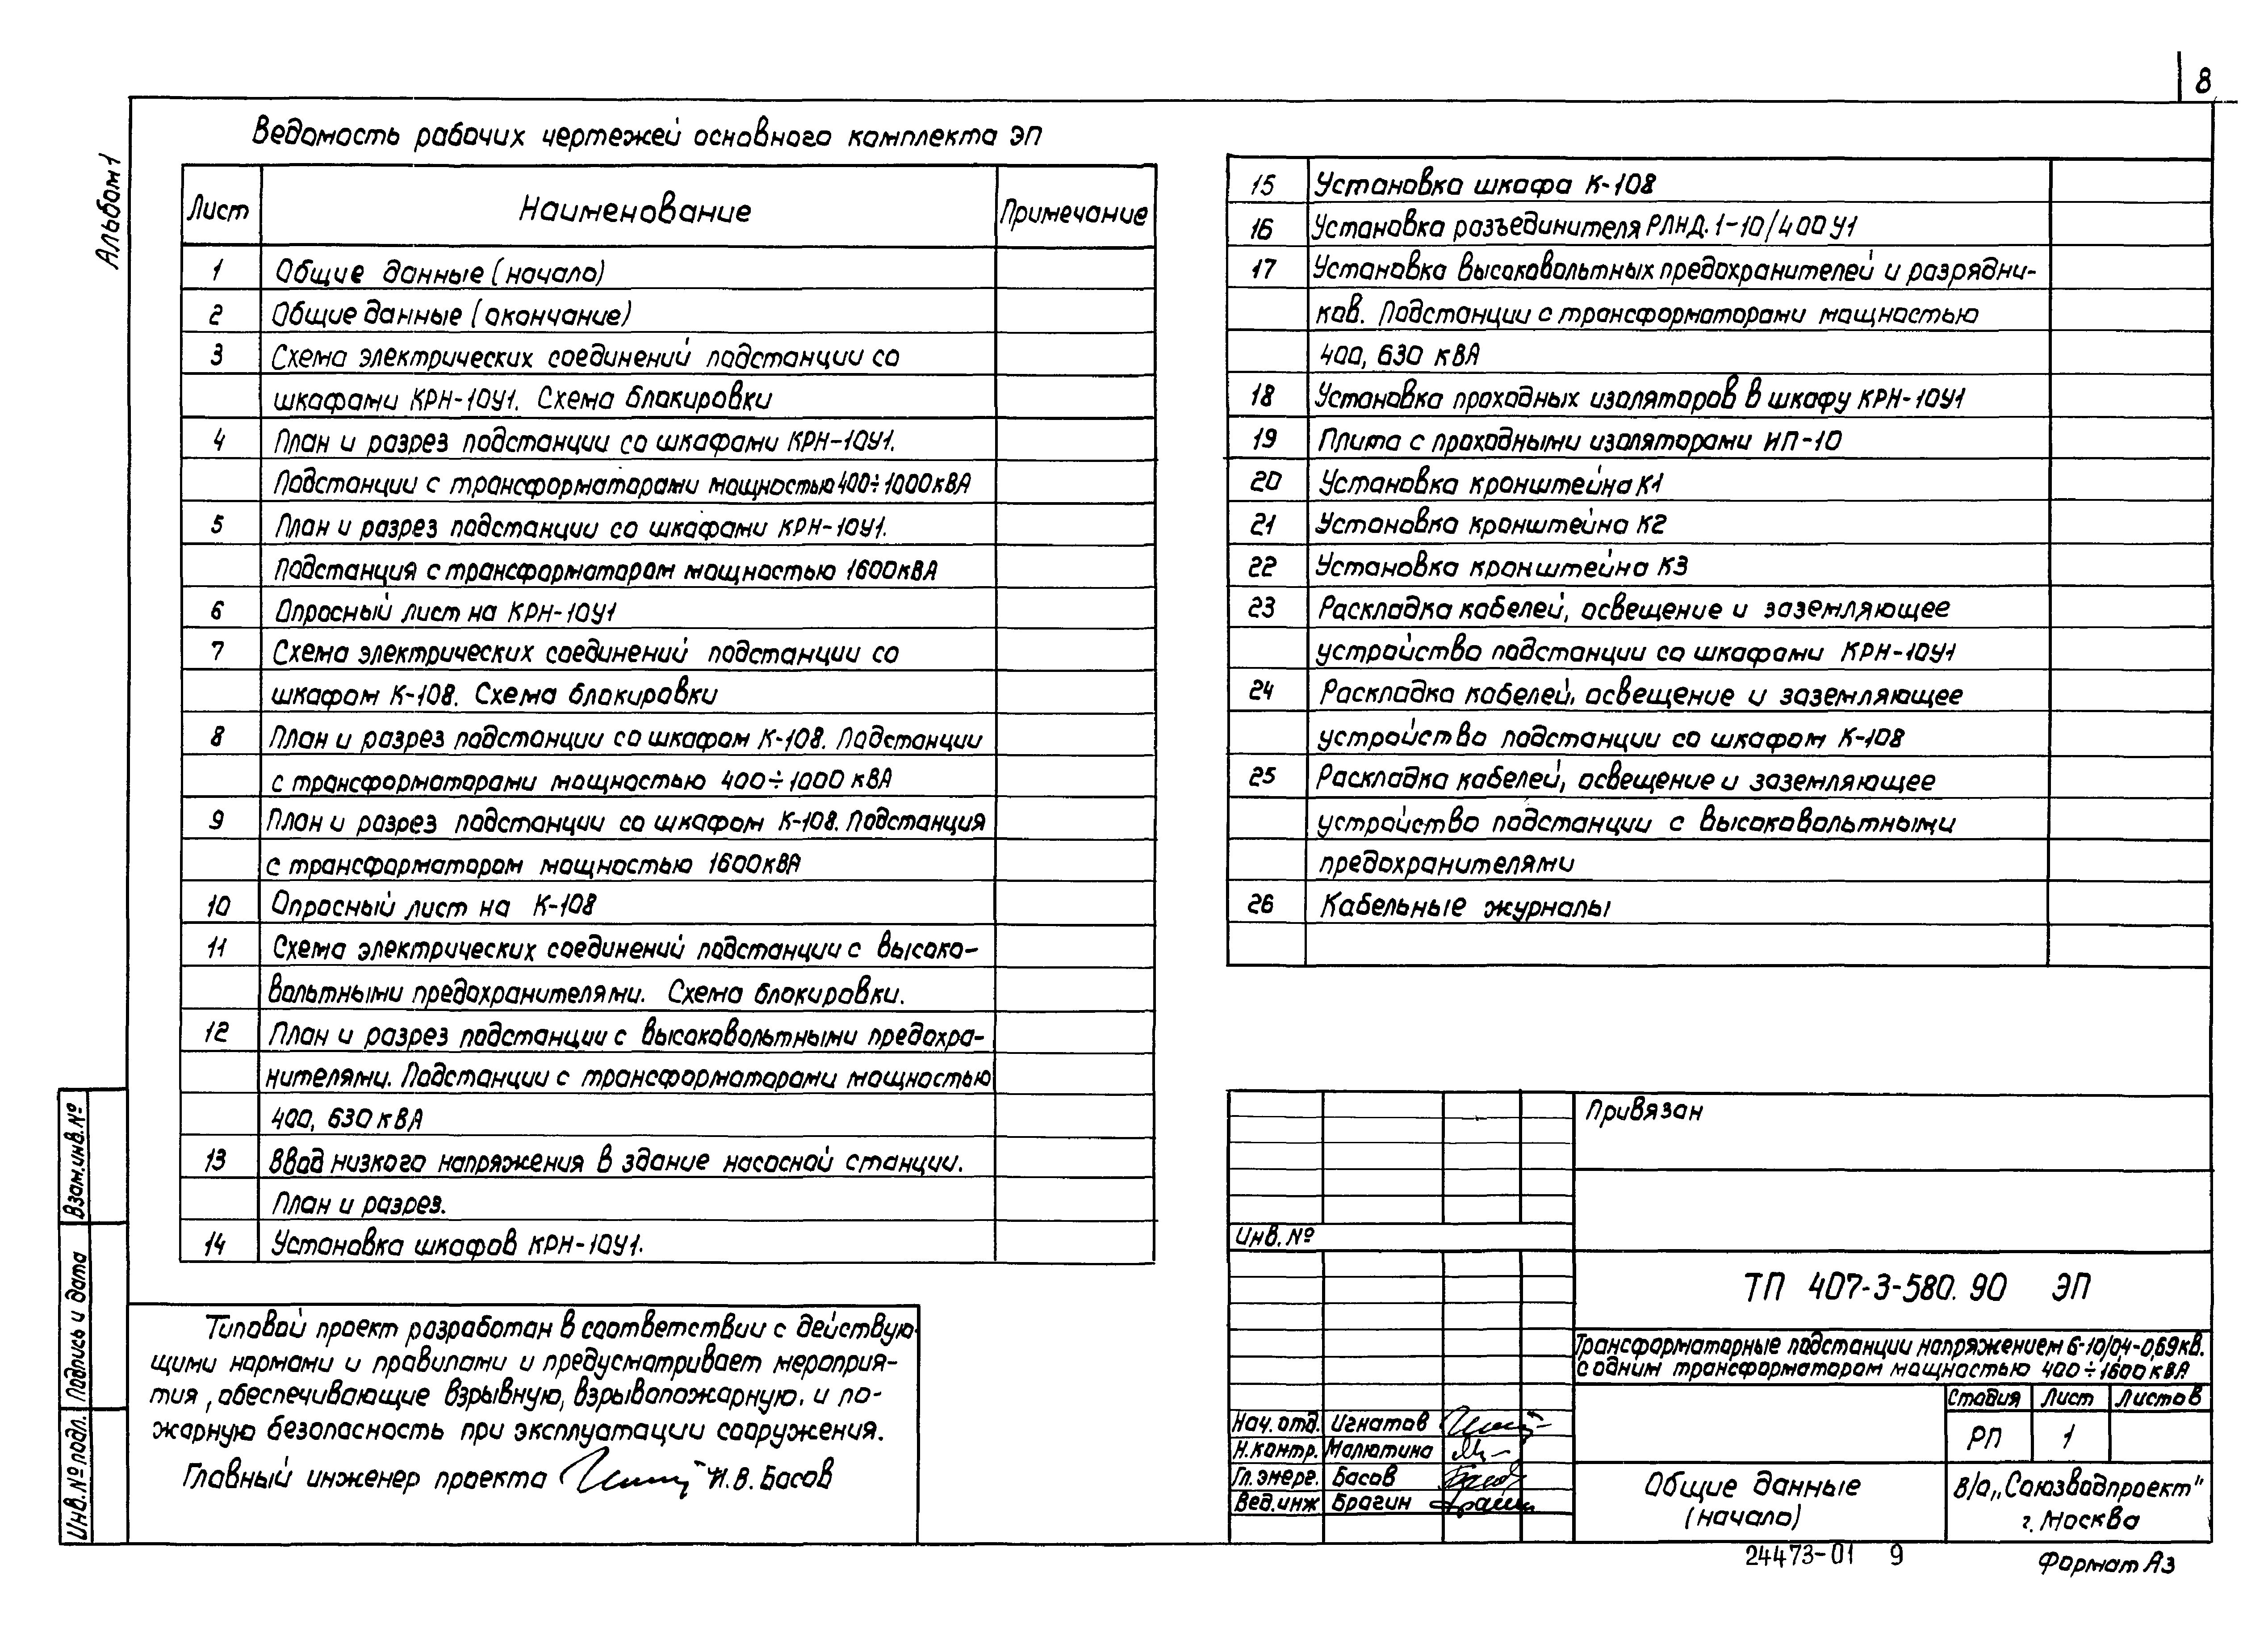 8
Альбом 1
Ведомость рабочих чертежей основного комплекта ЭП
Лист Наименование Примечание
1 Общие данные (начало)
2 Общие данные (окончание)
3 Схема электрических соединений подстанции со
шкафами КРН-10У1. Схема блокировки
4 План и разрез подстанции со шкафами КРН-10У1.
Подстанции с трансформаторами мощностью 400÷1000кВА
5 План и разрез подстанции со шкафами КРН-10У1.
Подстанция с трансформатором мощностью 1600кВА
6 Опросный лист на КРН-10У1
7 Схема электрических соединений подстанции со
шкафом К-108. Схема блокировки
8 План и разрез подстанции со шкафом К-108. Подстанции
с трансформаторами мощностью 400÷1000 кВА
9 План и разрез подстанции со шкафом К-108. Подстанция
с трансформатором мощностью 1600кВА
10 Опросный лист на К-108
11 Схема электрических соединений подстанции с высоко-
вольтными предохранителями. Схема блокировки.
12 План и разрез подстанции с высоковольтными предохра-
нителями. Подстанции с трансформаторами мощностью
400, 630 кВА
13 Ввод низкого напряжения в здание насосной станции.
План и разрез.
14 Установка шкафов КРН-10У1.
15 Установка шкафа К-108
16 Установка разъединителя РЛНД.1-10/400У1
17 Установка высоковольтных предохранителей и разрядни-
ков. Подстанции с трансформаторами мощностью
400, 630 кВА
18 Установка проходных изоляторов в шкафу КРН-10У1
19 Плита с проходными изоляторами ИП-10
20 Установка кронштейна К1
21 Установка кронштейна К2
22 Установка кронштейна К3
23 Раскладка кабелей, освещение и заземляющее
устройство подстанции со шкафами КРН-10У1
24 Раскладка кабелей, освещение и заземляющее
устройство подстанции со шкафом К-108
25 Раскладка кабелей, освещение и заземляющее
устройство подстанции с высоковольтными
предохранителями
26 Кабельные журналы
Типовой проект разработан в соответствии с действую-
щими нормами и правилами и предусматривает мероприя-
тия, обеспечивающие взрывную, взрывопожарную, и по-
жарную безопасность при эксплуатации сооружения.
Главный инженер проекта И.В. Басов
Взам.инв.№
Подпись и дата
Инв.№ подл.
Привязан
Инв. №
ТП 407-3-580.90 ЭП
Трансформаторные подстанции напряжением 6-10/0,4-0,69кв.
с одним трансформатором мощностью 400÷1600 кВА
Стадия Лист Листов
РП 1
Нач. отд. Игнатов
Н.контр. Малютина
Гл.энерг. Басов
Вед.инж Брагин
Общие данные
(начало)
В/О „Союзводпроект"
г. Москва
24473-01 9
Формат А3